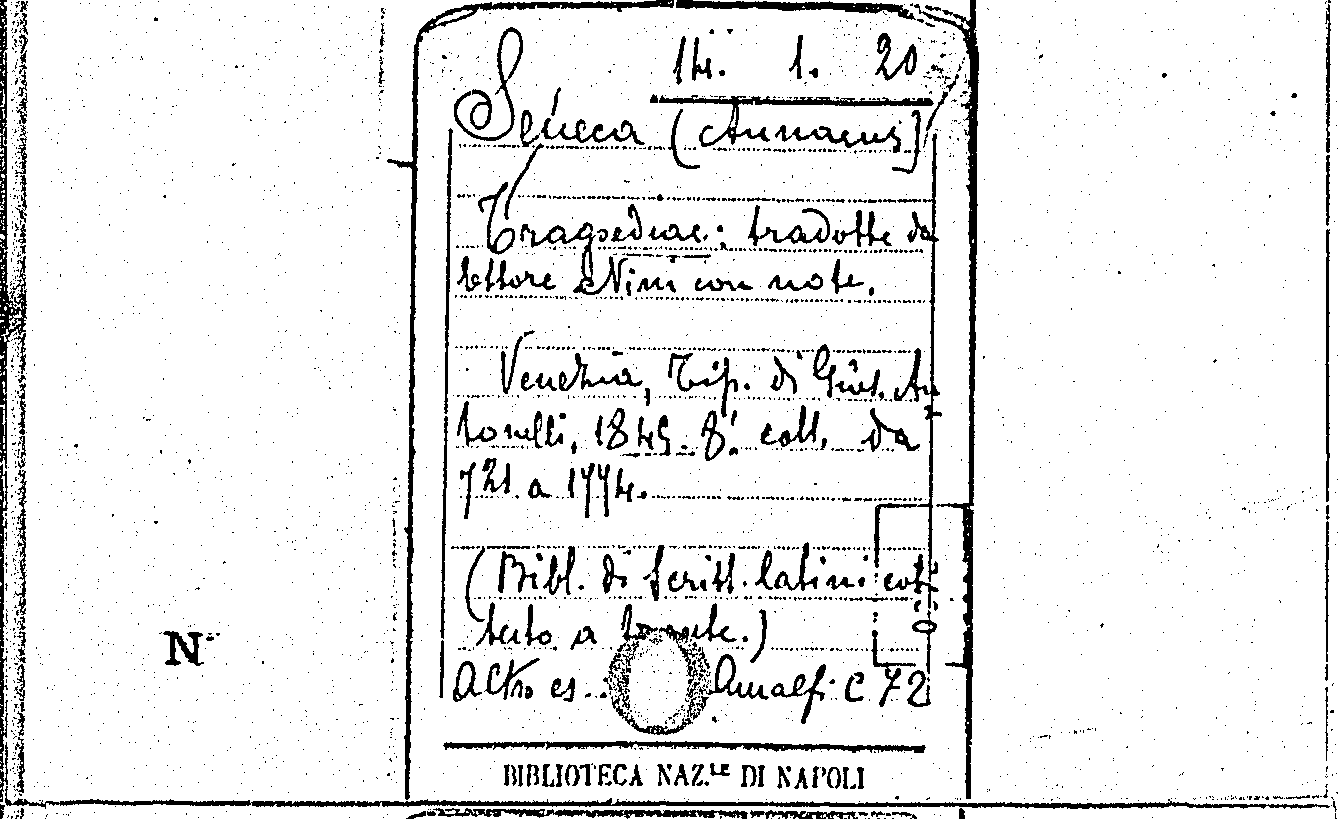 14. 1. 20
Seneca (Annaeus)
Tragoediae: tradotte da
Ettore Nini con note.
Venezia, Tip. di Gius. An=
tonelli, 1845. 8.° coll. da
721 a 1774.
(Bibl. di Scritt. latini col
testo a fronte.)
Altro es. Amalfi C 72
BIBLIOTECA NAZ.LE DI NAPOLI
N